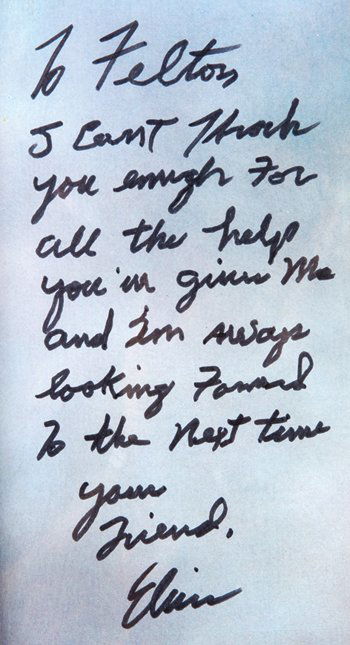 To Felton
I Cant Thank
you enough For
all the help
you've given Me
and I'm always
looking Forward
To the Next time
your
Friend,
Elvis